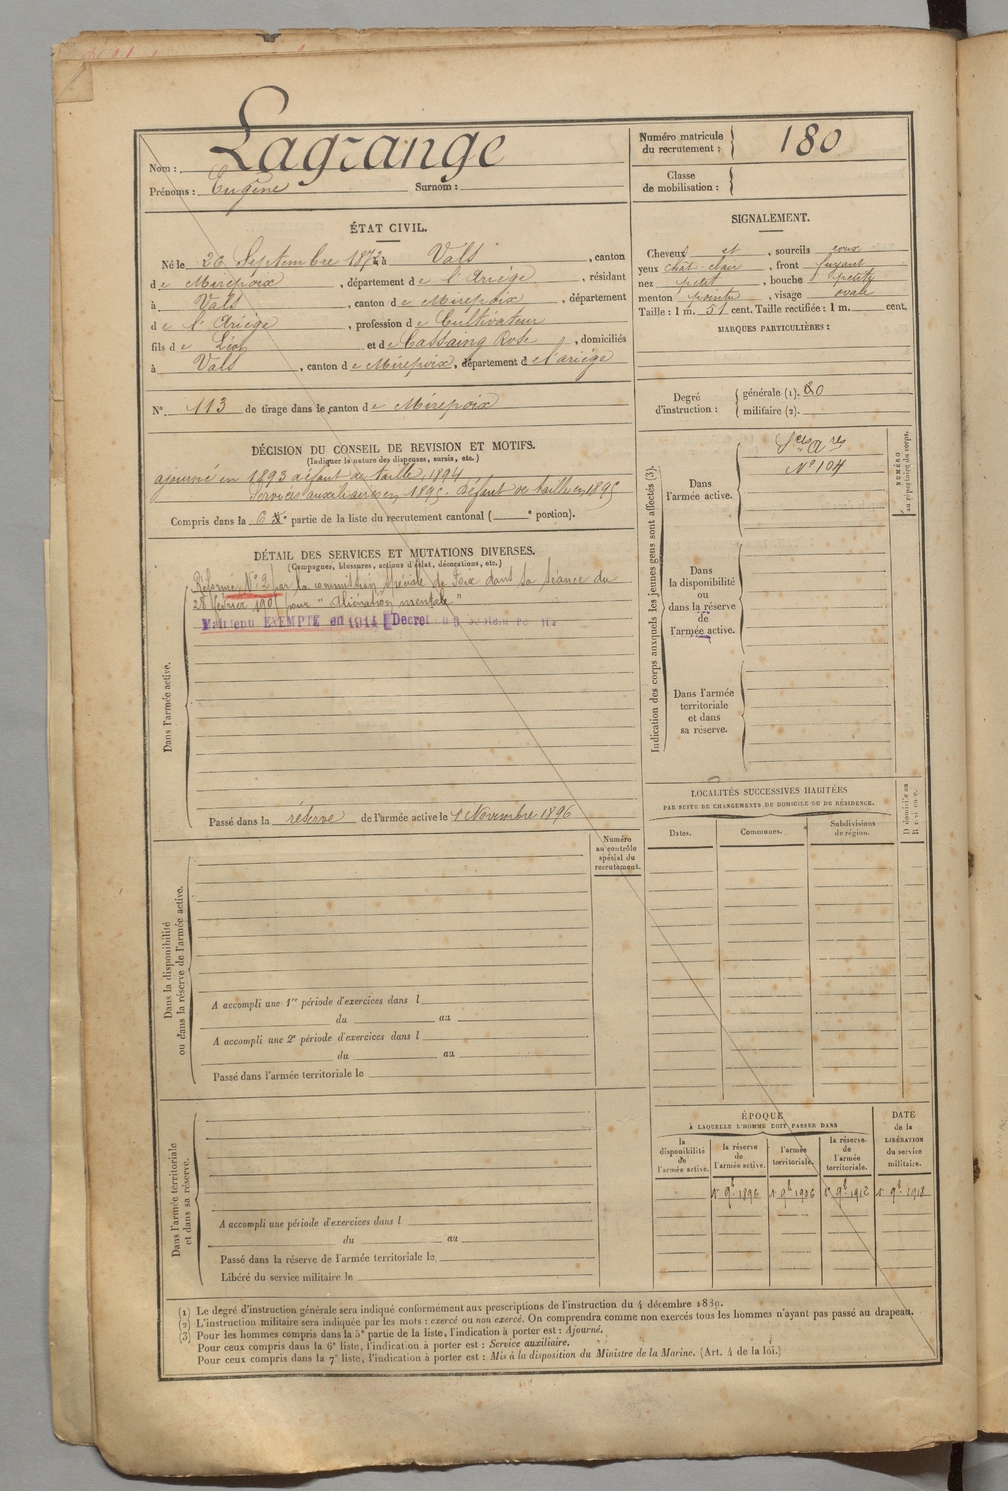 Nom : Lagrange
Prénoms : Eugène Surnom :
Numéro matricule du recrutement : 180
Classe de mobilisation :
ÉTAT CIVIL.
Né le 20 Septembre 1872 à Vals, canton
de Mirepoix, département de l'Ariège, résidant
à Vals, canton de Mirepoix, département
de l'Ariège, profession de Cultivateur
fils de Léon et de Cassaing Rose, domiciliés
à Vals, canton de Mirepoix, département de l'ariège
N° 113 de tirage dans le canton de Mirepoix
SIGNALEMENT.
Cheveux et, sourcils
yeux chât. clair, front fuyant
nez petit, bouche petite
menton pointu, visage ovale
Taille : 1 m. 51 cent. Taille rectifiée : 1 m. cent.
MARQUES PARTICULIÈRES :
Degré d'instruction : générale (1). 0
militaire (2).
DÉCISION DU CONSEIL DE REVISION ET MOTIFS.
(Indiquer la nature des dispenses, sursis, etc.)
ajourné en 1893 défaut de taille, 1894
Services auxiliaires en 1895. Défaut de taille en 1895
Compris dans la 6e partie de la liste du recrutement cantonal ( e portion).
DÉTAIL DES SERVICES ET MUTATIONS DIVERSES.
(Campagnes, blessures, actions d'éclat, décorations, etc.)
Réformé N° 2 par la commission spéciale de Foix dans sa séance du
28 février 1901 pour "Aliénation mentale"
Maintenu EXEMPTE en 1914 Décret du 9
Dans l'armée active.
Passé dans la réserve de l'armée active le 1 Novembre 1896
Indication des corps auxquels les jeunes gens sont affectés (3).
Dans l'armée active.
Ces Ares
N° 104
NUMÉRO au répertoire du corps.
Dans
la disponibilité
ou
dans la réserve
de
l'armée active.
Dans l'armée
territoriale
et dans
sa réserve.
LOCALITÉS SUCCESSIVES HABITÉES
PAR SUITE DE CHANGEMENTS DE DOMICILE OU DE RÉSIDENCE.
Dates. Communes. Subdivisions de région. D domicile ou R résidence.
Numéro
au contrôle
spécial du
recrutement.
Dans la disponibilité
ou dans la réserve de l'armée active.
A accompli une 1re période d'exercices dans l
du au
A accompli une 2e période d'exercices dans l
du au
Passé dans l'armée territoriale le
Dans l'armée territoriale
et dans sa réserve.
A accompli une période d'exercices dans l
du au
Passé dans la réserve de l'armée territoriale le
Libéré du service militaire le
ÉPOQUE
À LAQUELLE L'HOMME DOIT PASSER DANS
la disponibilité de l'armée active.
la réserve de l'armée active.
l'armée territoriale.
la réserve de l'armée territoriale.
DATE de la LIBÉRATION du service militaire.
1r 9b 1896 1r 9b 1906 1r 9b 1912 1r 9b 1918
(1) Le degré d'instruction générale sera indiqué conformément aux prescriptions de l'instruction du 4 décembre 1889.
(2) L'instruction militaire sera indiquée par les mots : exercé ou non exercé. On comprendra comme non exercés tous les hommes n'ayant pas passé au drapeau.
(3) Pour les hommes compris dans la 5e partie de la liste, l'indication à porter est : Ajourné.
Pour ceux compris dans la 6e liste, l'indication à porter est : Service auxiliaire.
Pour ceux compris dans la 7e liste, l'indication à porter est : Mis à la disposition du Ministre de la Marine. (Art. 4 de la loi.)